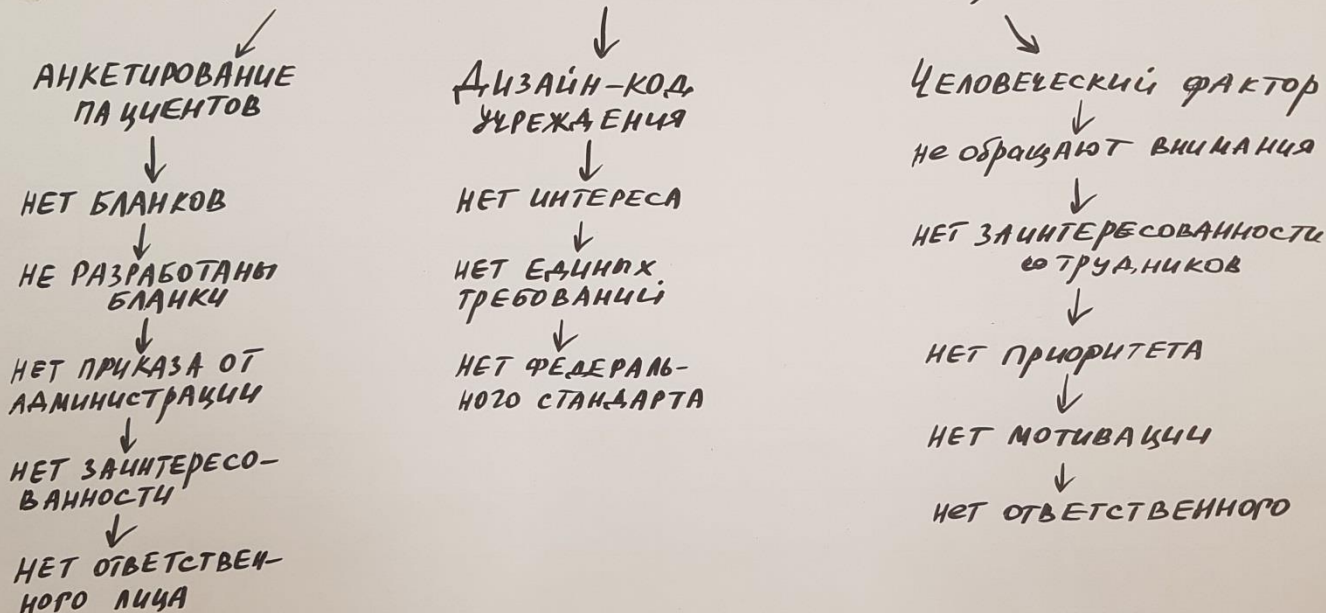 АНКЕТИРОВАНИЕ
ПАЦИЕНТОВ
НЕТ БЛАНКОВ
НЕ РАЗРАБОТАНЫ
БЛАНКИ
НЕТ ПРИКАЗА ОТ
АДМИНИСТРАЦИИ
НЕТ ЗАИНТЕРЕСО-
ВАННОСТИ
НЕТ ОТВЕТСТВЕН-
НОГО ЛИЦА
ДИЗАЙН-КОД
УЧРЕЖДЕНИЯ
НЕТ ИНТЕРЕСА
НЕТ ЕДИНЫХ
ТРЕБОВАНИЙ
НЕТ ФЕДЕРАЛЬ-
НОГО СТАНДАРТА
ЧЕЛОВЕЧЕСКИЙ ФАКТОР
не обращают внимания
НЕТ ЗАИНТЕРЕСОВАННОСТИ
СОТРУДНИКОВ
НЕТ ПРИОРИТЕТА
НЕТ МОТИВАЦИИ
НЕТ ОТВЕТСТВЕННОГО